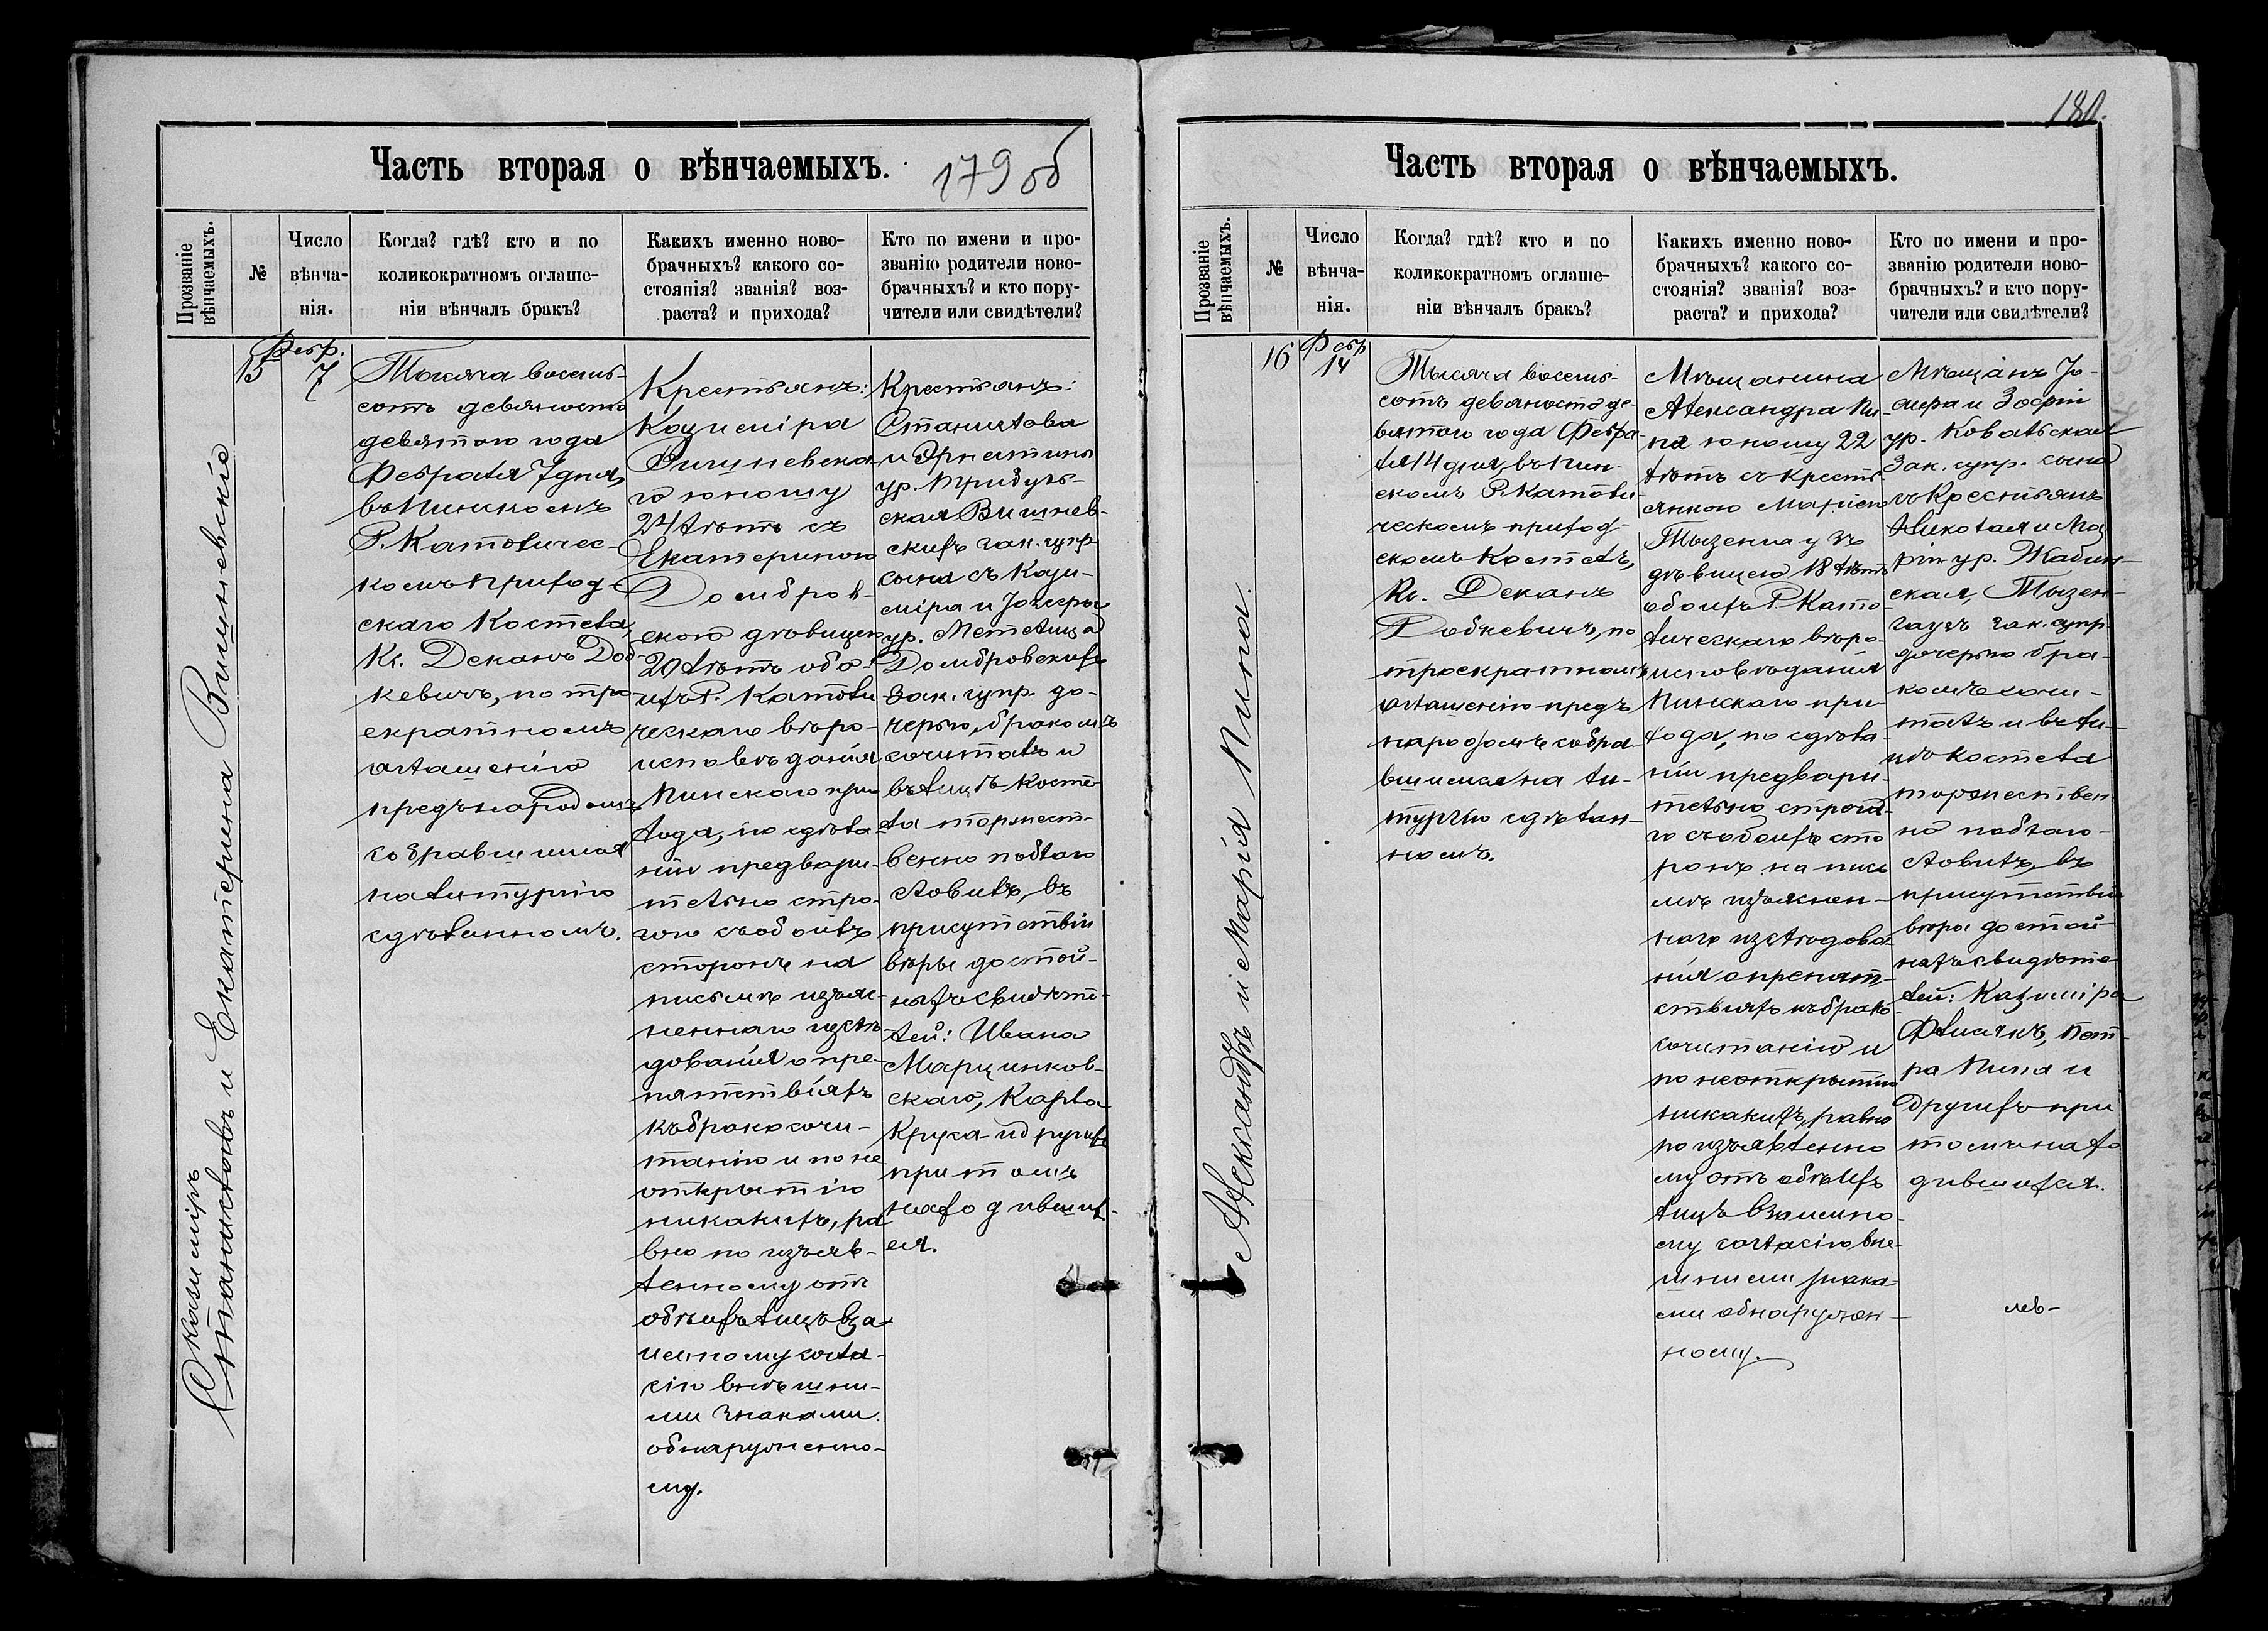 Часть вторая о вѣнчаемыхъ.
179 об
Прозваніе вѣнчаемыхъ.
№
Число
вѣнча-
нія.
Когда? гдѣ? кто и по
коликократномъ оглаше-
ніи вѣнчалъ бракъ?
Какихъ именно ново-
брачныхъ? какого со-
стоянія? званія? воз-
раста? и прихода?
Кто по имени и про-
званію родители ново-
брачныхъ? и кто пору-
чители или свидѣтели?
Казиміръ
Станиславъ и Екатерина Вишневскіе
15
Февр.
7
Тысяча восемь-
сотъ девяносто
девятого года
Февраля 7 дня,
въ Пинскомъ
Р. Католичес-
комъ приход-
скаго Костела,
Кс. Деканъ Доб-
кевичъ, по тро
екратномъ
оглашенію
предъ народомъ
собравшимся
на литургію
сдѣланномъ.
Крестьянъ:
Казиміра
Вишневска-
го юношу
24 лѣтъ съ
Екатериною
Домбров-
скою дѣвицею
20 лѣтъ обо-
ихъ Р. Католи
ческаго вѣро-
исповѣданія
Пинскаго при
хода, по сдѣла-
ніи предвари-
тельно стро-
гого съ обоихъ
сторонъ на
письмѣ изъяс-
неннаго изслѣ
дованія о пре-
пятствіяхъ
къ бракосочи-
танію и по не
открытію
никакихъ, ра
вно по изъяв-
ленному отъ
обѣихъ лицъ вза
имному согла-
сію внѣшни-
ми знаками
обнаруженно-
му.
Крестьянъ:
Станислава
и Эрнестины
ур. Трибуль-
ская Вишнев-
скихъ зак. супр.
сына съ Кази-
міра и Іозефы
ур. Метлица
Домбровскихъ
зак. супр. до-
черью, бракомъ
сочиталъ и
въ лицѣ Косте-
ла торжест-
венно поблаго
словилъ, въ
присутствіи
вѣры достой-
ныхъ свидѣте-
лей: Ивана
Марцинков-
скаго, Карла
Круса и другихъ
при томъ
находивших-
ся.
180.
Часть вторая о вѣнчаемыхъ.
Прозваніе вѣнчаемыхъ.
№
Число
вѣнча-
нія.
Когда? гдѣ? кто и по
коликократномъ оглаше-
ніи вѣнчалъ бракъ?
Какихъ именно ново-
брачныхъ? какого со-
стоянія? званія? воз-
раста? и прихода?
Кто по имени и про-
званію родители ново-
брачныхъ? и кто пору-
чители или свидѣтели?
Александръ и Марія Пипа.
16
Февр
14
Тысяча восемь-
сотъ девяносто де-
вятого года Февра-
ля 14 дня, въ Пин-
скомъ Р. Католи-
ческомъ приход-
скомъ Костелѣ,
Кс. Деканъ
Добкевичъ, по
троекратномъ
оглашенію предъ
народомъ собра
вшимся на ли-
тургію сдѣлан-
номъ.
Мѣщанина
Александра Пи
па юношу 22
лѣтъ съ крестъ-
янкою Маріею
Тызенгаузъ
дѣвицею 18 лѣтъ
обоихъ Р. Като-
лическаго вѣро-
исповѣданія
Пинскаго при-
хода, по сдѣла-
ніи предвари-
тельно строга-
го съ обоихъ сто
ронъ на пись
мѣ изъяснен-
наго изслѣдова-
нія о препят-
ствіяхъ къ брако
сочитанію и
по неоткрытію
никакихъ, равно
по изъявленно
му отъ обѣихъ
лицъ взаимно-
му согласію внѣ-
шними знака-
ми обнаружен-
ному.
Мѣщанъ Іо-
сифа и Зофіи
ур. Ковальская
зак. супр. сына
съ Крестьянъ
Николая и Ма
ріи ур. Жабин-
ская, Тызен-
гаузъ зак. супр.
дочерью бра-
комъ сочи-
талъ и въ ли-
цѣ Костела
торжествен
но поблаго-
словилъ, въ
присутствіи
вѣры достой-
ныхъ свидѣте-
лей: Казиміра
Флисикъ, Пет-
ра Пипа и
другихъ при
томъ нахо
дившихся.